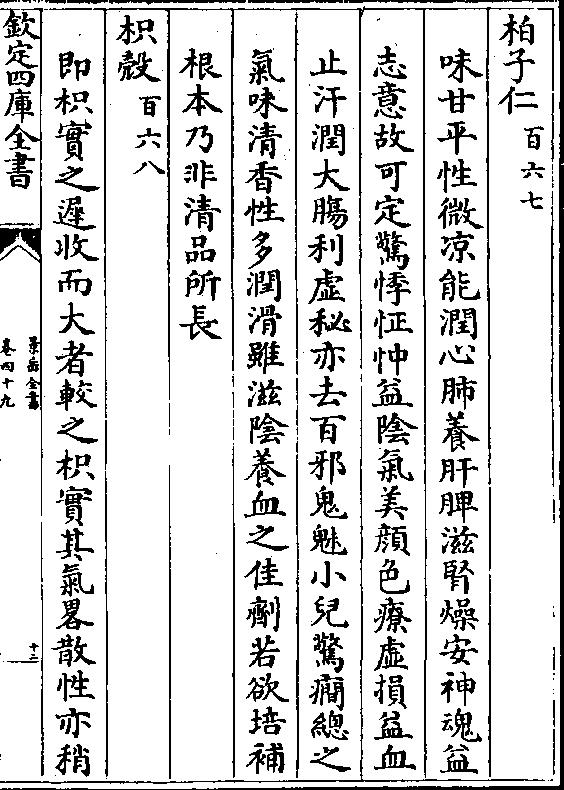 柏子仁 百六七
味甘平性微凉能潤心肺養肝脾滋腎燥安神魂益
志意故可定驚悸怔忡益陰氣美顔色療虛損益血
止汗潤大膓利虛秘亦去百邪鬼魅小兒驚癇總之
氣味清香性多潤滑雖滋陰養血之佳劑若欲培補
根本乃非清品所長
枳殻 百六八
即枳實之遲收而大者較之枳實其氣畧散性亦稍
欽定四庫全書
景岳全書
卷四十九
十三